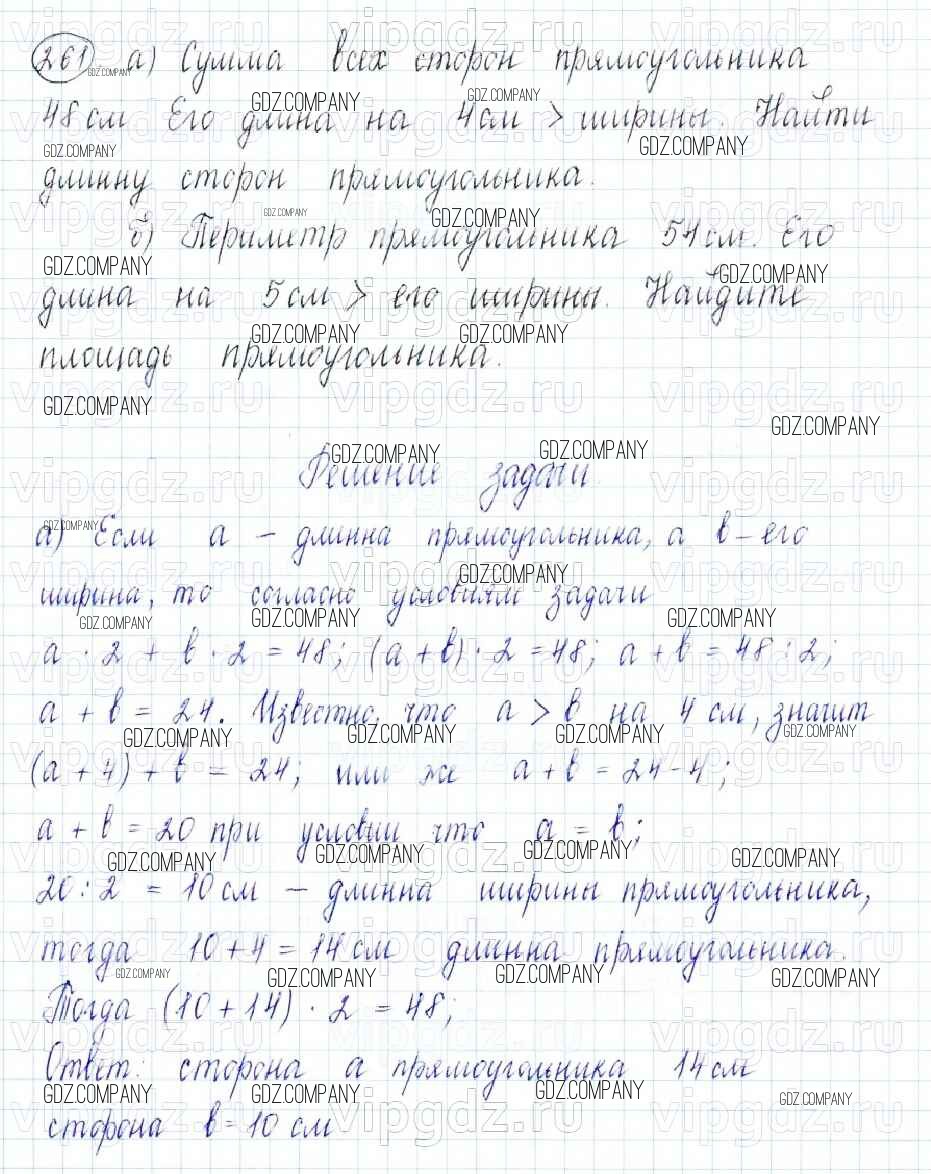 261 а) Сумма всех сторон прямоугольника
48 см Его длина на 4 см > ширины. Найти
длинну сторон прямоугольника.
б) Периметр прямоугольника 54 см. Его
длина на 5 см > его ширины. Найдите
площадь прямоугольника.
Решение задачи
а) Если а – длинна прямоугольника, а в – его
ширина, то согласно условиям задачи
а · 2 + в · 2 = 48; (а + в) · 2 = 48; а + в = 48 : 2;
а + в = 24. Известно, что а > в на 4 см, значит
(а + 4) + в = 24; или же а + в = 24 - 4;
а + в = 20 при условии что а = в;
20 : 2 = 10 см – длинна ширины прямоугольника,
тогда 10 + 4 = 14 см длинна прямоугольника.
Тогда (10 + 14) · 2 = 48;
Ответ: сторона а прямоугольника 14 см
сторона в = 10 см
GDZ.COMPANY
vipgdz.ru